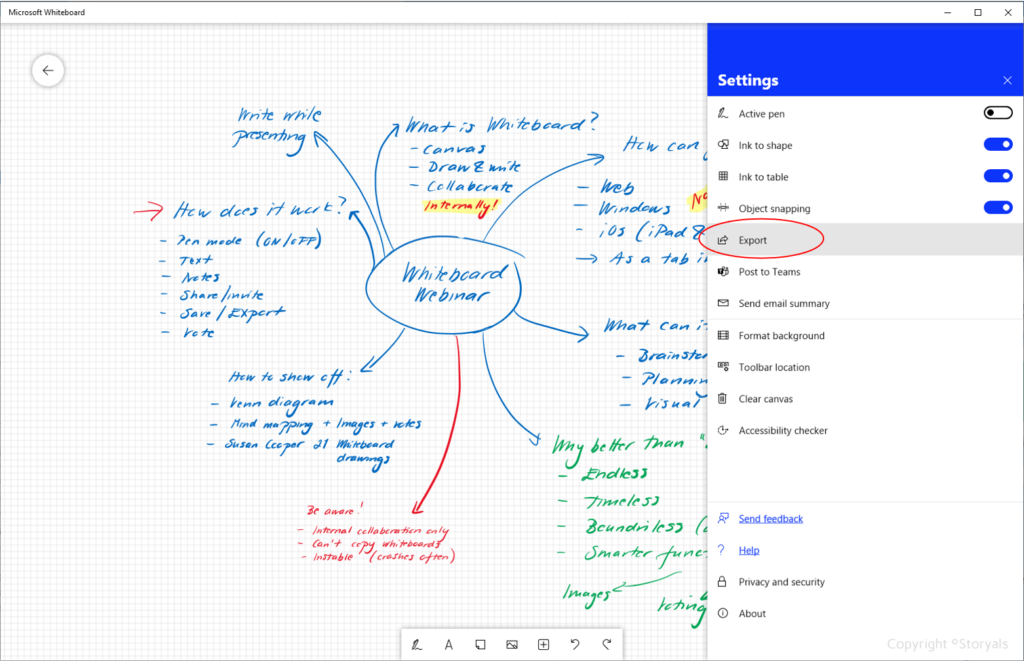 Microsoft Whiteboard
Write while
presenting
What is Whiteboard?
- Canvas
- Draw & write
- Collaborate
Internally!
How can
- Web
- Windows
- iOS (iPad &
→ As a tab in
How does it work?
- Pen mode (ON/OFF)
- Text
- Notes
- Share/invite
- Save/Export
- Vote
Whiteboard
Webinar
What can it
- Brainstor
- Plannin
- Visual
How to show off:
- Venn diagram
- Mind mapping + Images + votes
- Susan Cooper 21 Whiteboard
drawings
Why better than "
- Endless
- Timeless
- Boundriless (
- Smarter func
Images
Voting
Be aware!
- Internal collaboration only
- Can't copy whiteboards
- Instable (crashes often)
Settings
Active pen
Ink to shape
Ink to table
Object snapping
Export
Post to Teams
Send email summary
Format background
Toolbar location
Clear canvas
Accessibility checker
Send feedback
Help
Privacy and security
About
Copyright ©Storyals